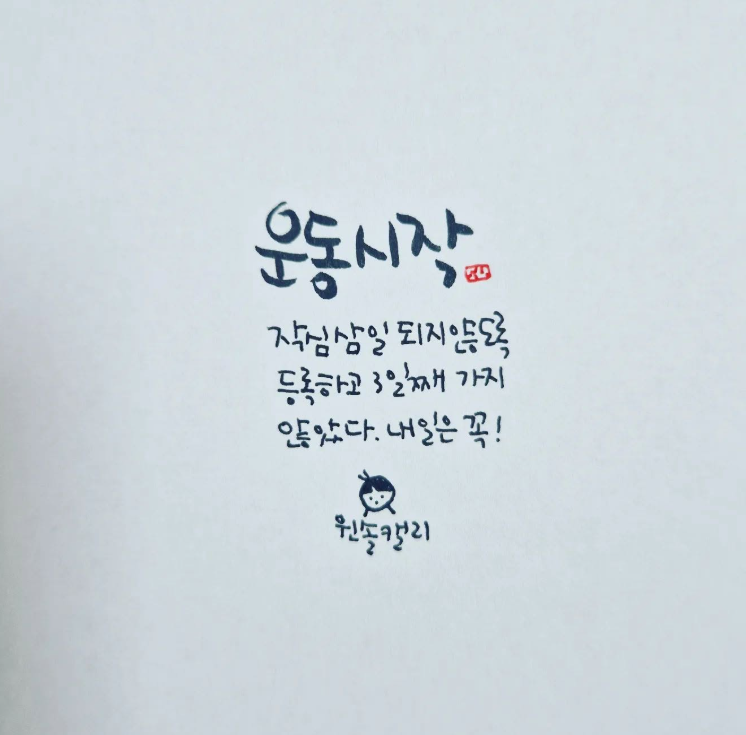 운동시작
작심삼일 되지않도록
등록하고 3일째 가지
않았다. 내일은 꼭!
원솔캘리